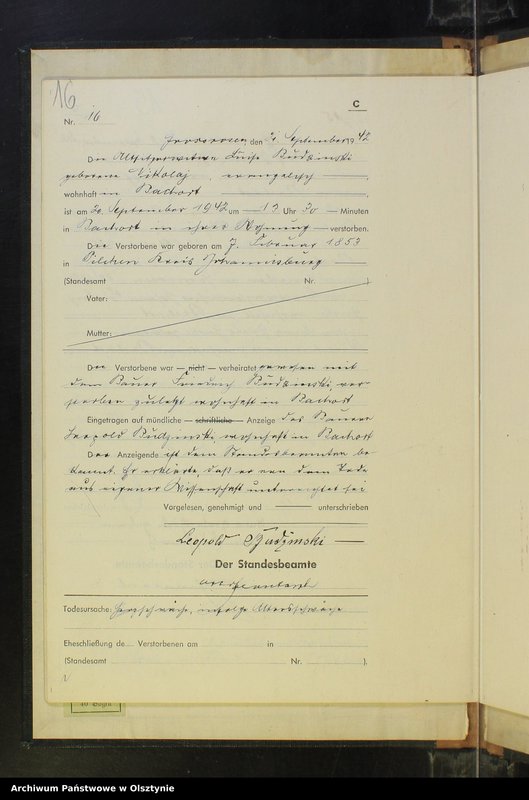 16
C
Nr. 16
Grossrosen, den 21. September 1942
Die Altsitzerwitwe Luise Budzinski
geborene Nikolaj, evangelisch
wohnhaft in Bachort
ist am 20. September 1942 um 13 Uhr 30 Minuten
in Bachort in ihrer Wohnung verstorben.
Die Verstorbene war geboren am 7. Februar 1853
in Pilchen Kreis Johannisburg
(Standesamt Nr. )
Vater:
Mutter:
Die Verstorbene war — nicht — verheiratet gewesen mit
dem Bauer Friedrich Budzinski, ver-
storben zuletzt wohnhaft in Bachort
Eingetragen auf mündliche — schriftliche — Anzeige des Bauern
Leopold Budzinski, wohnhaft in Bachort
Der Anzeigende ist dem Standesbeamten be-
kannt. Er erklärte, daß er von dem Tode
aus eigener Wissenschaft unterrichtet sei
Vorgelesen, genehmigt und unterschrieben
Leopold Budzinski
Der Standesbeamte
Todesursache: Herzschwäche, infolge Altersschwäche
Eheschließung de Verstorbenen am in
(Standesamt Nr. ).
Archiwum Państwowe w Olsztynie